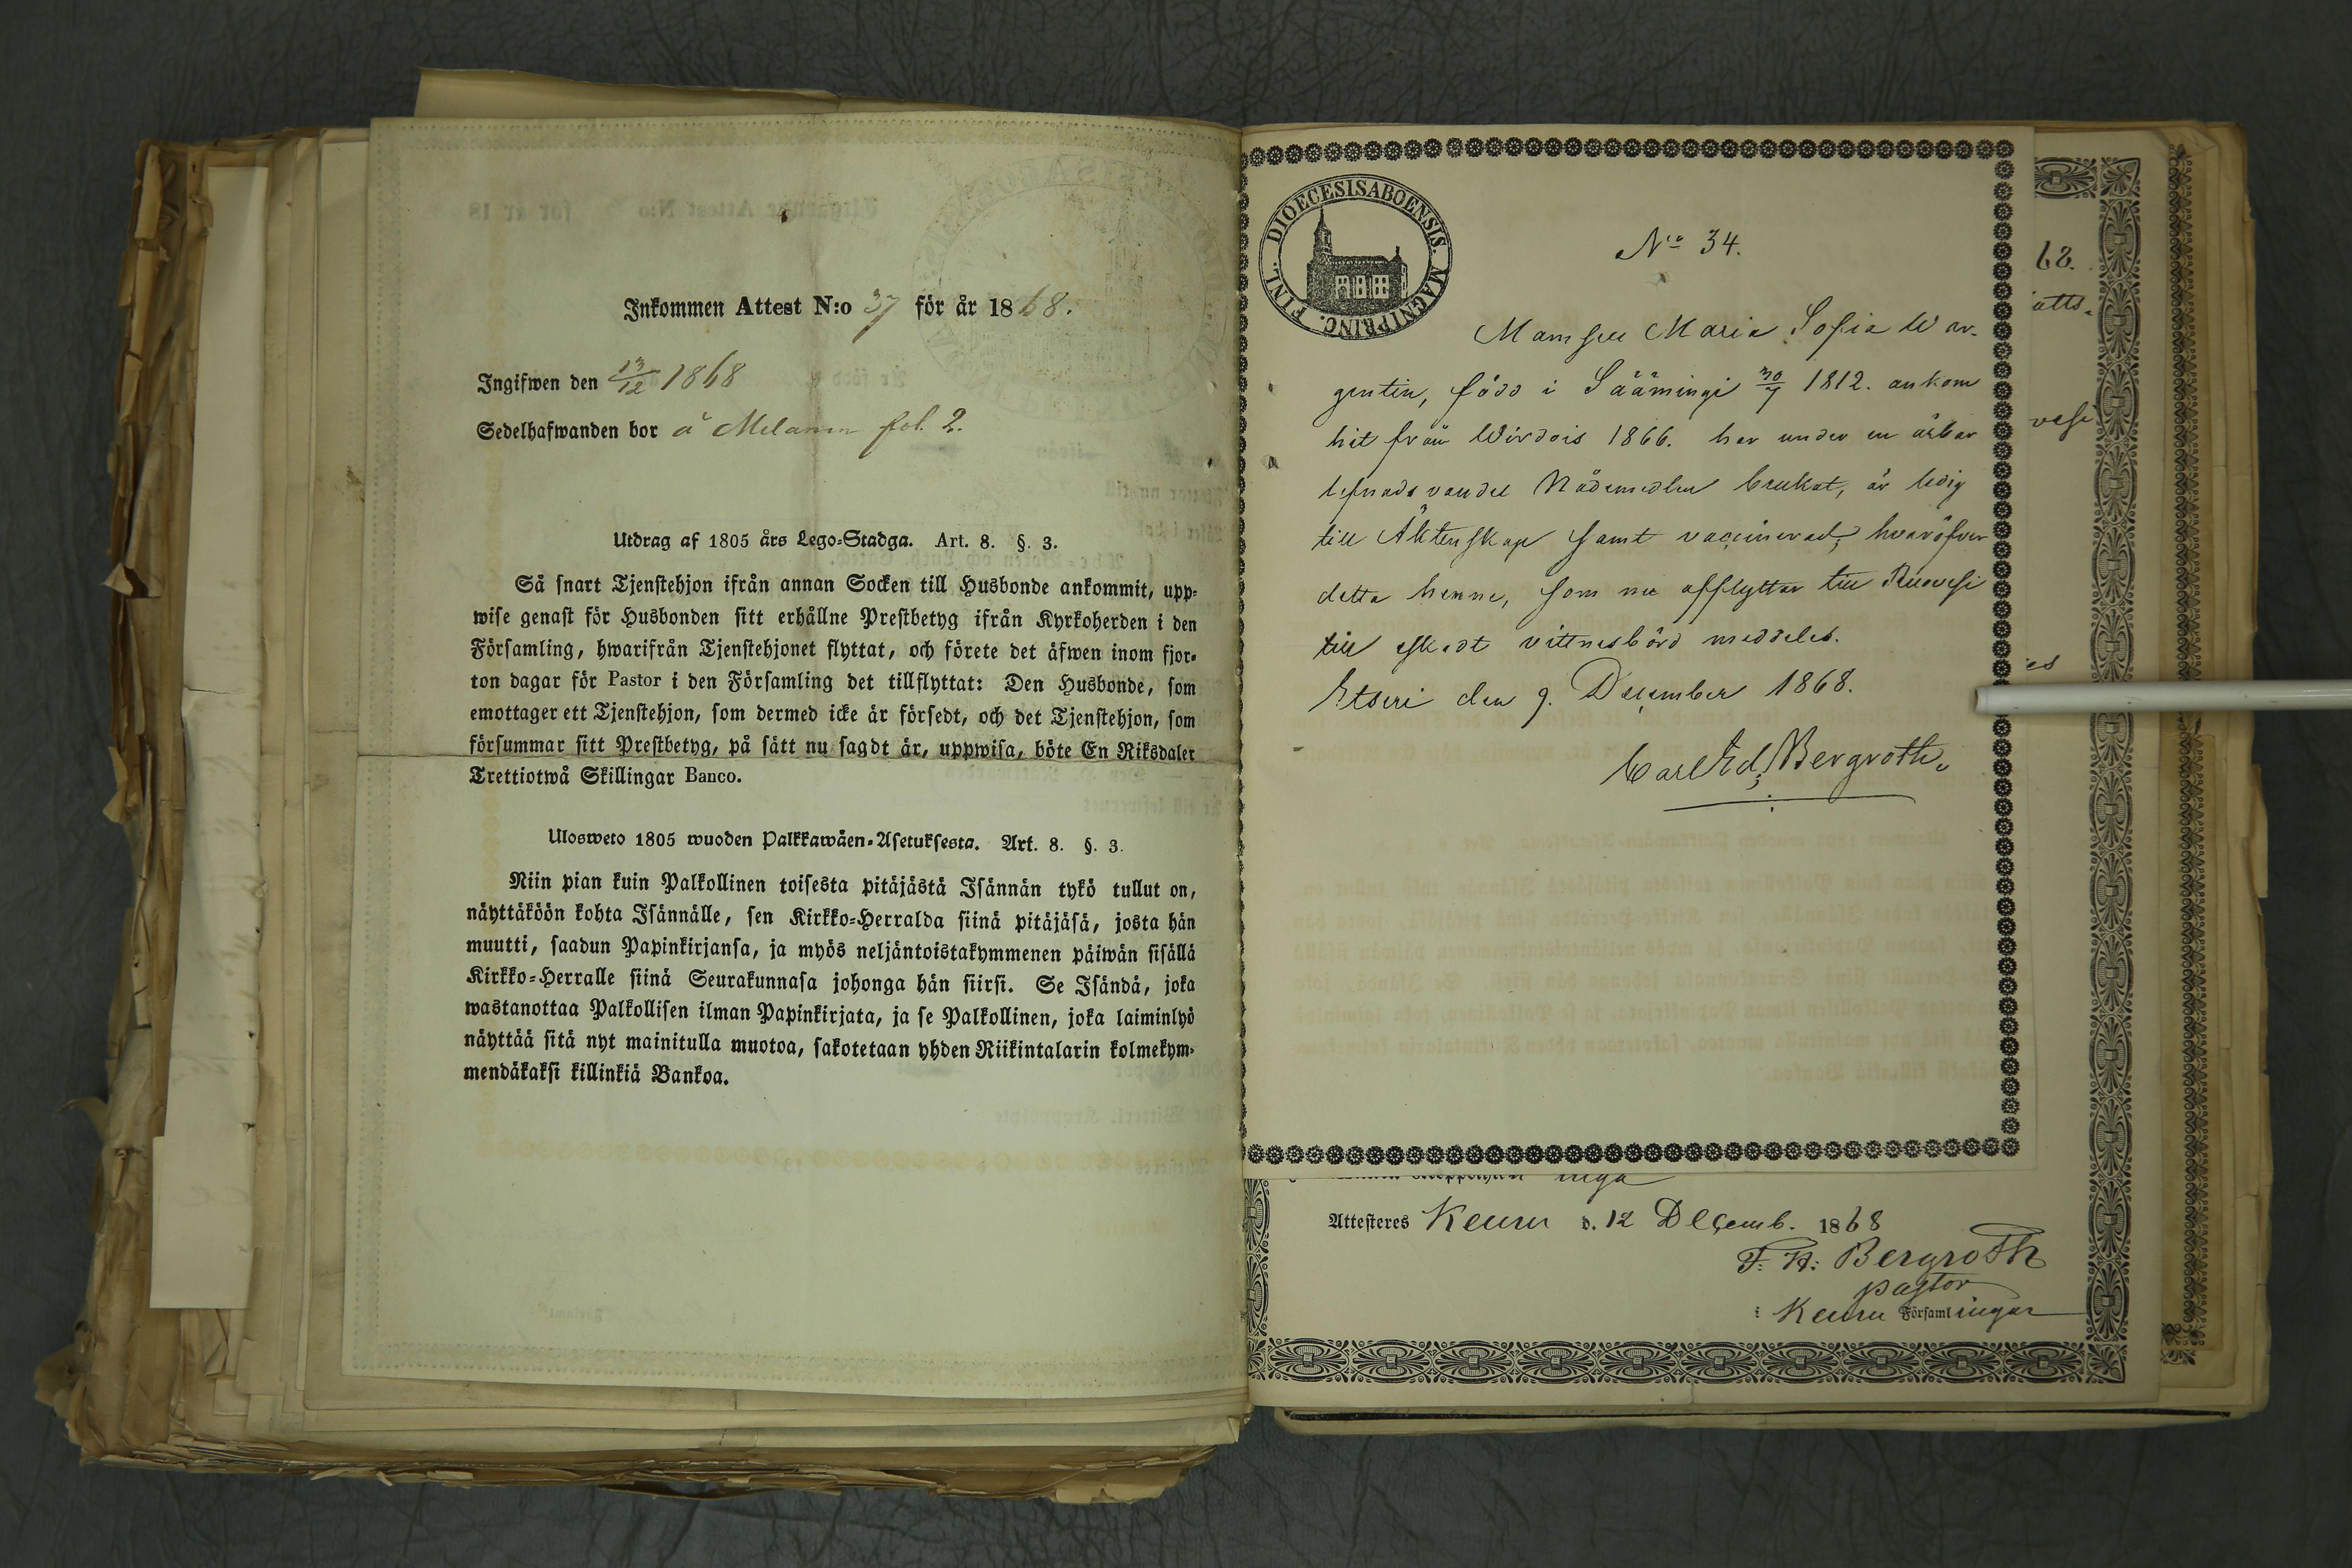 Inkommen Attest N:o 37 för år 1868.
Ingifwen den 13/12 1868
Sedelhafwanden bor å Melanen fol. 2.
Utdrag af 1805 års Lego-Stadga. Art. 8. §. 3.
Så snart Tjenstehjon ifrån annan Socken till Husbonde ankommit, upp-
wise genast för Husbonden sitt erhållne Prestbetyg ifrån Kyrkoherden i den
Församling, hwarifrån Tjenstehjonet flyttat, och förete det äfwen inom fjor-
ton dagar för Pastor i den Församling det tillflyttat: Den Husbonde, som
emottager ett Tjenstehjon, som dermed icke är försedt, och det Tjenstehjon, som
försummar sitt Prestbetyg, på sätt nu sagdt är, uppwisa, böte En Riksdaler
Trettiotwå Skillingar Banco.
Ulosweto 1805 wuoden Palkkawäen-Asetuksesta. Art. 8. §. 3.
Niin pian kuin Palkollinen toisesta pitäjästä Isännän tykö tullut on,
näyttäköön kohta Isännälle, sen Kirkko-Herralda siinä pitäjäsä, josta hän
muutti, saadun Papinkirjansa, ja myös neljäntoistakymmenen päiwän sisällä
Kirkko-Herralle siinä Seurakunnasa johonga hän siirsi. Se Isändä, joka
wastanottaa Palkollisen ilman Papinkirjata, ja se Palkollinen, joka laiminlyö
näyttää sitä nyt mainitulla muotoa, sakotetaan yhden Riikintalarin kolmekym-
mendäkaksi killinkiä Bankoa.
DIOECESIS ABOENSIS. MAGNI PRINC. FINL.
No 34.
Mamsell Maria Sofia War-
gentin, född i Säämingi 30/7 1812. ankom
hit från Wirdois 1866. har under en ärbar
lefnadsvandel Nådemedlen brukat, är ledig
till Äktenskap samt vaccinerad; hvaröfver
detta henne, som nu afflyttar till Ruovesi
till äskadt vittnesbörd meddelas.
Etseri den 9. December 1868.
Carl Ed; Bergroth.
68.
atts.
vesi
es
inga
Attesteres Keuru d. 12 Decemb. 1868
F. H: Bergroth
pastor
i Keuru Församlingar